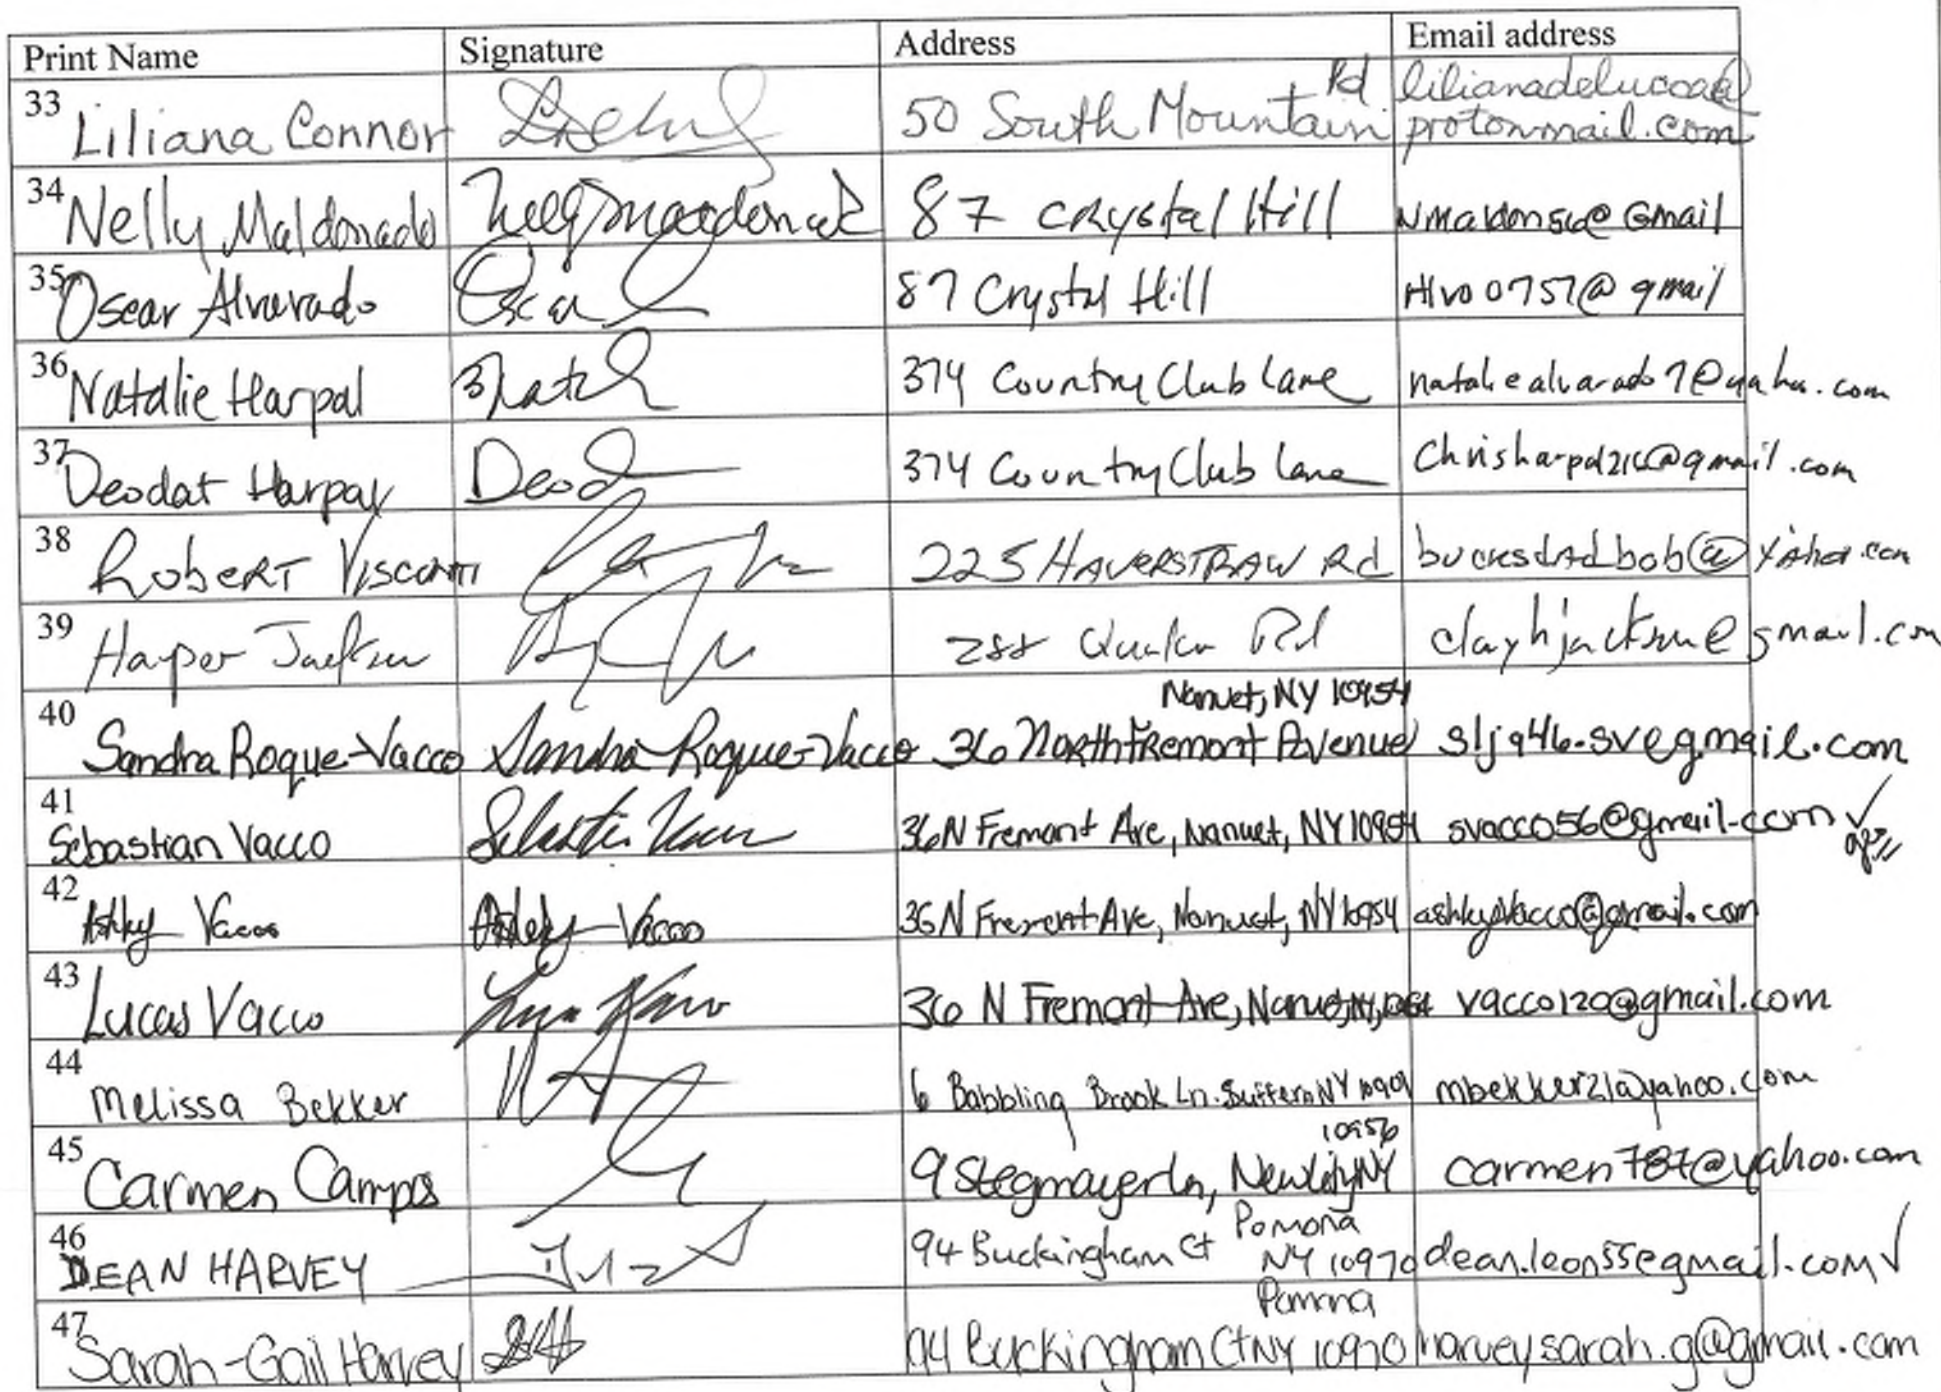 Print Name Signature Address Email address
33 Liliana Connor 50 South Mountain Rd lilianadelucca@
protonmail.com
34 Nelly Maldonado 87 Crystal Hill @ Gmail
35 Oscar Alvarado Oscar 87 Crystal Hill Alvo0757@gmail
36 Natalie Harpal 374 Country Club Lane nataliealvarado7@yahoo.com
37 Deodat Harpal Deod 374 Country Club Lane
38 Robert Visconti 225 HAVERSTRAW Rd bucksdadbob@yahoo.com
39 Harper Jackson 288 Quaker Rd clayhjackson@gmail.com
Nanuet, NY 10954
40 Sandra Roque-Vacco Sandra Roque-Vacco 36 North Fremont Avenue slja46.sv@gmail.com
41 Sebastian Vacco Sebastian Vacco 36 N Fremont Ave, Nanuet, NY 10954 svacco56@gmail.com
42 Ashley Vacco Ashley Vacco 36 N Fremont Ave, Nanuet, NY 10954 ashleyvacco@gmail.com
43 Lucas Vacco 36 N Fremont Ave, Nanuet, NY, 10954 vacco120@gmail.com
44 Melissa Bekker 6 Babbling Brook Ln. Suffern NY 10901 mbekker21@yahoo.com
10956
45 Carmen Campos 9 Stegmayer Ln, New City NY carmen787@yahoo.com
Pomona
46 DEAN HARVEY 94 Buckingham Ct NY 10970 dean.leon55@gmail.com
Pomona
47 Sarah-Gail Harvey 94 Buckingham Ct NY 10970 harveysarah.g@gmail.com